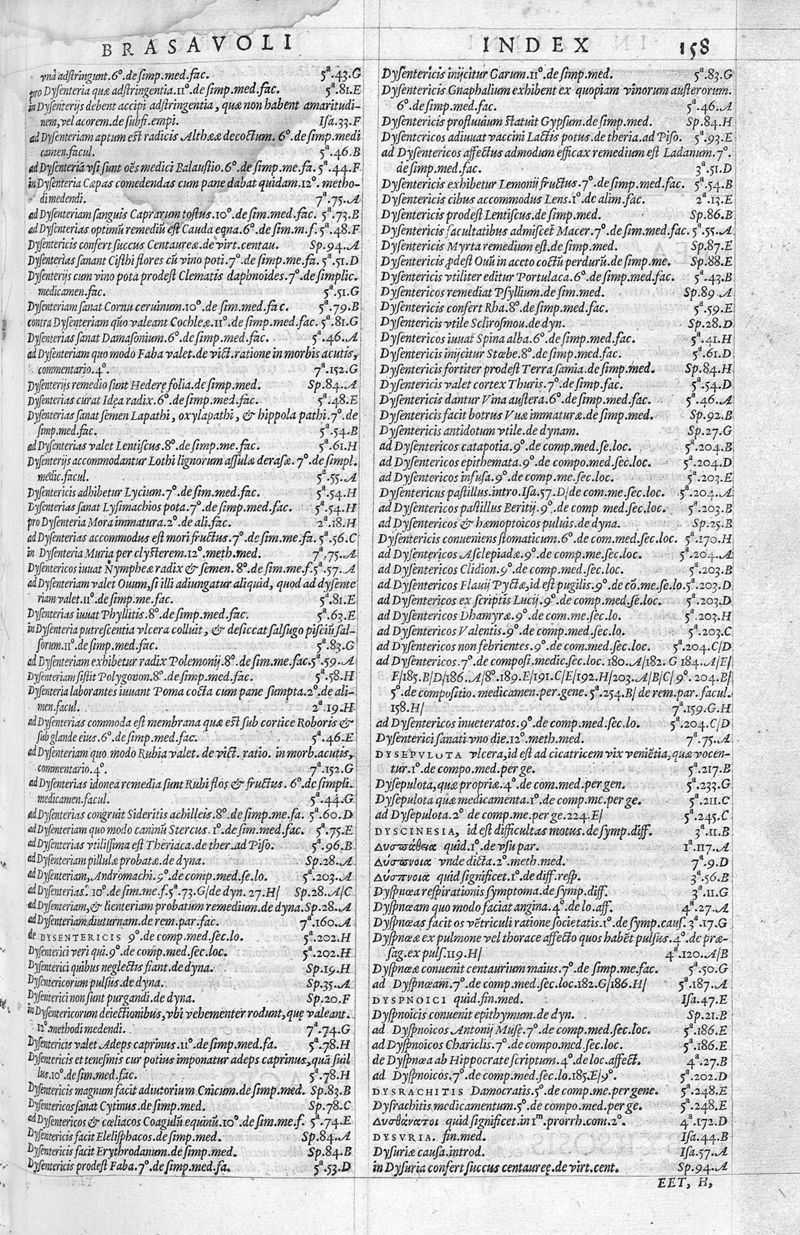 BRASAVOLI INDEX 158
vnà adstringunt.6º.de simp.med.fac. 5ª.43.G
pro Dysenteria quæ adstringentia.11º.de simp.med.fac. 5ª.81.E
in Dysenterijs debent accipi adstringentia, quæ non habent amaritudi-
nem, vel acorem.de subfi.empi. Isa.33.F
ad Dysenteriam aptum est radicis Altheæ decoctum. 6º.de simp.medi
camen.facul. 5ª.46.B
ad Dysenteriã vsi sunt oẽs medici Balaustio.6º.de simp.me.fa. 5ª.44.F
in Dysenteria Cæpas comedendas cum pane dabat quidam.12º. metho-
di medendi. 7ª.75.A
ad Dysenteriam sanguis Caprarum tostus.10º.de sim.med.fac. 5ª.73.B
ad Dysenterias optimũ remediũ est Cauda eqna.6º.de sim.m.f. 5ª.48.F
Dysentericis confert succus Centaureæ.de virt.centau. Sp.94.A
Dysenterias sanant Cisthi flores cũ vino poti.7º.de simp.me.fa. 5ª.51.D
Dysenterijs cum vino pota prodest Clematis daphnoides.7º.de simplic.
medicamen.fac. 5ª.51.G
Dysenteriam sanat Cornu ceruinum.10º.de sim.med.fac. 5ª.79.B
contra Dysenteriam quõ valeant Cochleæ.11º.de simp.med.fac. 5ª.81.G
Dysenterias sanat Damasonium.6º.de simp.med.fac. 5ª.46.A
ad Dysenteriam quo modo Faba valet.de vict.ratione in morbis acutis,
commentario.4º. 7ª.152.G
Dysenterijs remedio sunt Hederę folia.de simp.med. Sp.84.A
Dysenterias curat Idea radix.6º.de simp.med.fac. 5ª.48.E
Dysenterias sanat semen Lapathi, oxylapathi, & hippola pathi.7º.de
simp.med.fac. 5ª.54.B
ad Dysenterias valet Lentiscus.8º.de simp.me.fac. 5ª.61.H
Dysenterijs accommodantur Lothi lignorum assulæ derasæ. 7º.de simpl.
medic.facul. 5ª.55.A
Dysentericis adhibetur Lycium.7º.de sim.med.fac. 5ª.54.H
Dysenterias sanat Lysimachios pota.7º.de simp.med.fac. 5ª.54.H
pro Dysenteria Mora immatura.2º.de ali.fac. 2ª.18.H
ad Dysenterias accommodus est mori fructus.7º.de sim.me.fa. 5ª.56.C
in Dysenteria Muria per clysterem.12º.meth.med. 7ª.75.A
Dysentericos iuuat Nympheæ radix & semen.8º.de sim.me.f. 5ª.57.A
ad Dysenteriam valet Ouum, si illi adiungatur aliquid, quod ad dysente
riam valet.11º.de simp.me.fac. 5ª.81.E
Dysenterias iuuat Phyllitis.8º.de simp.med.fac. 5ª.63.E
in Dysenteria putrescentia vlcera colluit, & desiccat salsugo pisciũ sal-
sorum.11º.de simp.med.fac. 5ª.83.G
ad Dysenteriam exhibetur radix Polemonij.8º.de sim.me.fac. 5ª.59.A
Dysenteriam sistit Polygonon.8º.de simp.med.fac. 5ª.58.H
Dysenteria laborantes iuuant Poma cocta cum pane sumpta.2º.de ali-
men.facul. 2ª.19.H
ad Dysenterias commoda est membrana quæ est sub cortice Roboris &
sub glande eius.6º.de simp.med.fac. 5ª.46.E
ad Dysenteriam quo modo Rubia valet. de vict. ratio. in morb.acutis,
commentario.4º. 7ª.152.G
ad Dysenterias idonea remedia sunt Rubi flos & fructus. 6º.de simpli.
medicamen.facul. 5ª.44.G
ad Dysenterias congruit Sideritis achilleis.8º.de simp.me.fa. 5ª.60.D
ad Dysenteriam quo modo caninũ Stercus.1º.de sim.med.fac. 5ª.75.E
ad Dysenterias vtilissima est Theriaca.de ther.ad Piso. 5ª.96.B
ad Dysenteriam pillulæ probatæ.de dyna. Sp.28.A
ad Dysenteriam, Andromachi.9º.de comp.med.se.lo. 5ª.203.A
ad Dysenterias. 10º.de sim.me.f.5ª.73.G/de dyn.27.H/ Sp.28.A/C
ad Dysenteriam,& lienteriam probatum remedium.de dyna. Sp.28.A
ad Dysenteriam diuturnam.de rem.par.fac. 7ª.160.A
de DYSENTERICIS 9º.de comp.med.sec.lo. 5ª.202.H
Dysenterici veri qui.9º.de comp.med.sec.loc. 5ª.202.H
Dysenterici quibus neglectis fiant.de dyna. Sp.19.H
Dysentericorum pulsus.de dyna. Sp.35.A
Dysenterici non sunt purgandi.de dyna. Sp.20.F
in Dysentericorum deiectionibus, vbi vehementer rodunt, quę valeant.
12º.methodi medendi. 7ª.74.G
Dysentericis valet Adeps caprinus.11º.de simp.med.fa. 5ª.78.H
Dysentericis et tenesmis cur potius imponatur adeps caprinus, quã suil
lus.10º.de sim.med.fac. 5ª.78.H
Dysentericis magnum facit adiutorium Cnicum.de simp.med. Sp.83.B
Dysentericos sanat Cytinus.de simp.med. Sp.78.C
ad Dysentericos & cœliacos Coagulũ equinũ.10º.de sim.me.f. 5ª.74.E
Dysentericis facit Elelisphacos.de simp.med. Sp.84.A
Dysentericis facit Erythrodanum.de simp.med. Sp.84.B
Dysentericis prodest Faba.7º.de simp.med.fa. 5ª.53.D
Dysentericis inijcitur Garum.11º.de simp.med. 5ª.83.G
Dysentericis Gnaphalium exhibent ex quopiam vinorum austerorum.
6º.de simp.med.fac. 5ª.46.A
Dysentericis profluuium statuit Gypsum.de simp.med. Sp.84.H
Dysentericos adiuuat vaccini Lactis potus.de theria.ad Piso. 5ª.93.E
ad Dysentericos affectus admodum efficax remedium est Ladanum.7º.
de simp.med.fac. 3ª.51.D
Dysentericis exhibetur Lemonij fructus.7º.de simp.med.fac. 5ª.54.B
Dysentericis cibus accommodus Lens.1º.de alim.fac. 2ª.13.E
Dysentericis prodest Lentiscus.de simp.med. Sp.86.B
Dysentericis facultatibus admiscet Macer.7º.de sim.med.fac. 5ª.55.A
Dysentericis Myrta remedium est.de simp.med. Sp.87.E
Dysentericis pdest Ouũ in aceto coctũ perdurũ.de simp.me. Sp.88.E
Dysentericis vtiliter editur Portulaca.6º.de simp.med.fac. 5ª.43.B
Dysentericos remediat Psyllium.de sim.med. Sp.89.A
Dysentericis confert Rha.8º.de simp.med.fac. 5ª.59.E
Dysentericis vtile Sclirosmou.de dyn. Sp.28.D
Dysentericos iuuat Spina alba.6º.de simp.med.fac. 5ª.41.H
Dysentericis inijcitur Stœbe.8º.de simp.med.fac. 5ª.61.D
Dysentericis fortiter prodest Terra samia.de simp.med. Sp.84.H
Dysentericis valet cortex Thuris.7º.de simp.fac. 5ª.54.D
Dysentericis dantur Vina austera.6º.de simp.med.fac. 5ª.46.A
Dysentericis facit botrus Vuæ immaturæ.de simp.med. Sp.92.B
Dysentericis antidotum vtile.de dynam. Sp.27.G
ad Dysentericos catapotia.9º.de comp.med.se.loc. 5ª.204.B
ad Dysentericos epithemata.9º.de compo.med.sec.loc. 5ª.204.D
ad Dysentericos infusa.9º.de comp.me.sec.loc. 5ª.203.E
Dysentericus pastillus.intro.Isa.57.D/de com.me.sec.loc. 5ª.204.A
ad Dysentericos pastillus Beritij.9º.de comp med.sec.loc. 5ª.203.B
ad Dysentericos & hæmoptoicos puluis.de dyna. Sp.25.B
Dysentericis conueniens stomaticum.6º.de com.med.sec.loc. 5ª.170.H
ad Dysentericos Asclepiadæ.9º.de comp.me.sec.loc. 5ª.204.A
ad Dysentericos Clidion.9º.de comp.med.sec.loc. 5ª.203.B
ad Dysentericos Flauij Pyctæ, id est pugilis.9º.de cõ.me.se.lo. 5ª.203.D
ad Dysentericos ex scriptis Lucij.9º.de comp.med.se.loc. 5ª.203.D
ad Dysentericos Dhamyræ.9º.de com.me.sec.lo. 5ª.203.H
ad Dysentericos Valentis.9º.de comp.med.sec.lo. 5ª.203.C
ad Dysentericos non febrientes.9º.de com.med.sec.loc. 5ª.204.C/D
ad Dysentericos.7º.de composi.medic.sec.loc.180.A/182.G 184.A/E/
F/185.B/D/186.A/8º.189.E/191.C/E/192.H/203.A/B/C/9º.204.B/
5º.de compositio.medicamen.per.gene.5ª.254.B/de rem.par.facul.
158.H/ 7ª.159.G.H
ad Dysentericos inueteratos.9º.de comp.med.sec.lo. 5ª.204.C/D
Dysenterici sanati vno die.12º.meth.med. 7ª.75.A
DYSEPVLOTA vlcera, id est ad cicatricem vix veniẽtia, quæ vocen-
tur.1º.de compo.med.per ge. 5ª.217.B
Dysepulota, quæ propriæ.4º.de com.med.per gen. 5ª.233.G
Dysepulota quæ medicamenta.1º.de comp.me.per ge. 5ª.211.C
ad Dysepulota.2º de comp.me.per ge.224.E/ 5ª.245.C
DYSCINESIA, id est difficultas motus.de symp.diff. 3ª.11.B
Δυσπάθεια quid.1º.de vsu par. 1ª.117.A
Δύσπνοια vnde dicta.2º.meth.med. 7ª.9.D
Δύσπνοια quid significet.1º.de diff.resp. 3ª.56.B
Dyspnœa respirationis symptoma.de symp.diff. 3ª.11.G
Dyspnœam quo modo faciat angina.4º.de lo.aff. 4ª.27.A
Dyspnœas facit os vẽtriculi ratione societatis.1º.de symp.caus. 3ª.17.G
Dyspnœæ ex pulmone vel thorace affecto quos habẽt pulsus.4º.de præ-
sag.ex puls.119.H/ 4ª.120.A/B
Dyspnœæ conuenit centaurium maius.7º.de simp.me.fac. 5ª.50.G
ad Dyspnœam.7º.de comp.med.sec.loc.182.G/186.H/ 5ª.187.A
DYSPNOICI quid.fin.med. Isa.47.E
Dyspnoicis conuenit epithymum.de dyn. Sp.21.B
ad Dyspnoicos Antonij Musę.7º.de comp.med.sec.loc. 5ª.186.E
ad Dyspnoicos Chariclis.7º.de compo.med.sec.loc. 5ª.186.E
de Dyspnœa ab Hippocrate scriptum.4º.de loc.affect. 4ª.27.B
ad Dyspnoicos.7º.de comp.med.sec.lo.185.E/9º. 5ª.202.D
DYSRACHITIS Damocratis.5º.de comp.me.per gene. 5ª.248.E
Dysrachitis medicamentum.5º.de compo.med.per ge. 5ª.248.E
Δυσθάνατοι quid significet.in 1ᵐ.prorrh.com.2º. 4ª.172.D
DYSVRIA. fin.med. Isa.44.B
Dysuriæ causa.introd. Isa.57.A
in Dysuria confert succus centaureę.de virt.cent. Sp.94.A
EET, H,